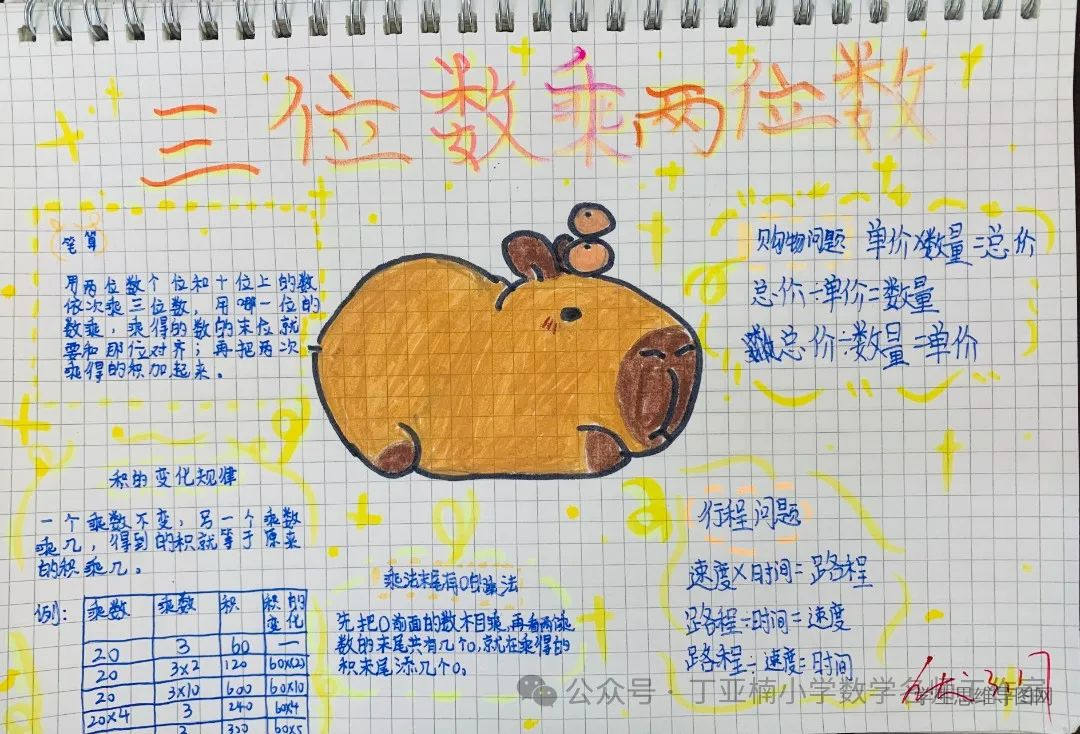 三位数乘两位数
笔算
用两位数个位和十位上的数
依次乘三位数，用哪一位的
数乘，乘得的数的末位就
要和那位对齐；再把两次
乘得的积加起来。
购物问题 单价×数量=总价
总价÷单价=数量
总价÷数量=单价
积的变化规律
一个乘数不变，另一个乘数
乘几，得到的积就等于原来
的积乘几。
例：
乘数 乘数 积 积的变化
20 3 60 —
20 3×2 120 60×(2)
20 3×10 600 60×10
20×4 3 240 60×4
乘法末尾有0的算法
先把0前面的数相乘，再看两乘
数的末尾共有几个0，就在乘得的
积末尾添几个0。
行程问题
速度×时间=路程
路程÷时间=速度
路程÷速度=时间
公众号·丁亚楠小学数学名师工作室
思维导图网